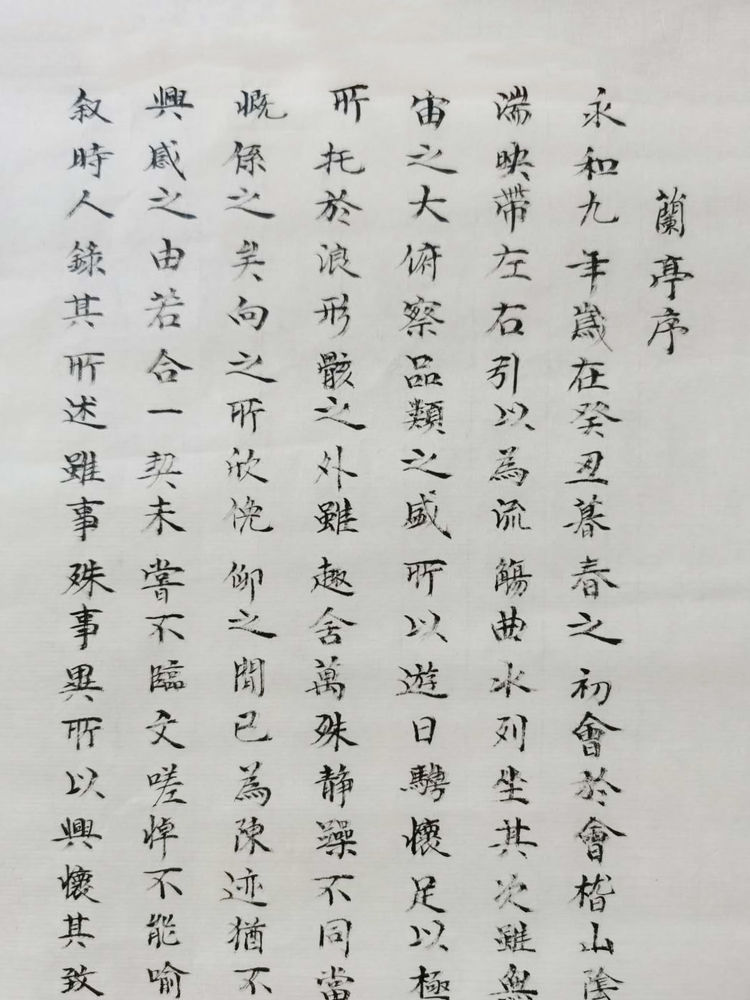 蘭亭序
永和九年歲在癸丑暮春之初會於會稽山陰
湍映帶左右引以為流觴曲水列坐其次雖無
宙之大俯察品類之盛所以遊日騁懷足以極
所托於浪形骸之外雖趣舍萬殊靜躁不同當
慨係之矣向之所欣俛仰之間已為陳迹猶不
興感之由若合一契未嘗不臨文嗟悼不能喻
叙時人錄其所述雖事殊事異所以興懷其致